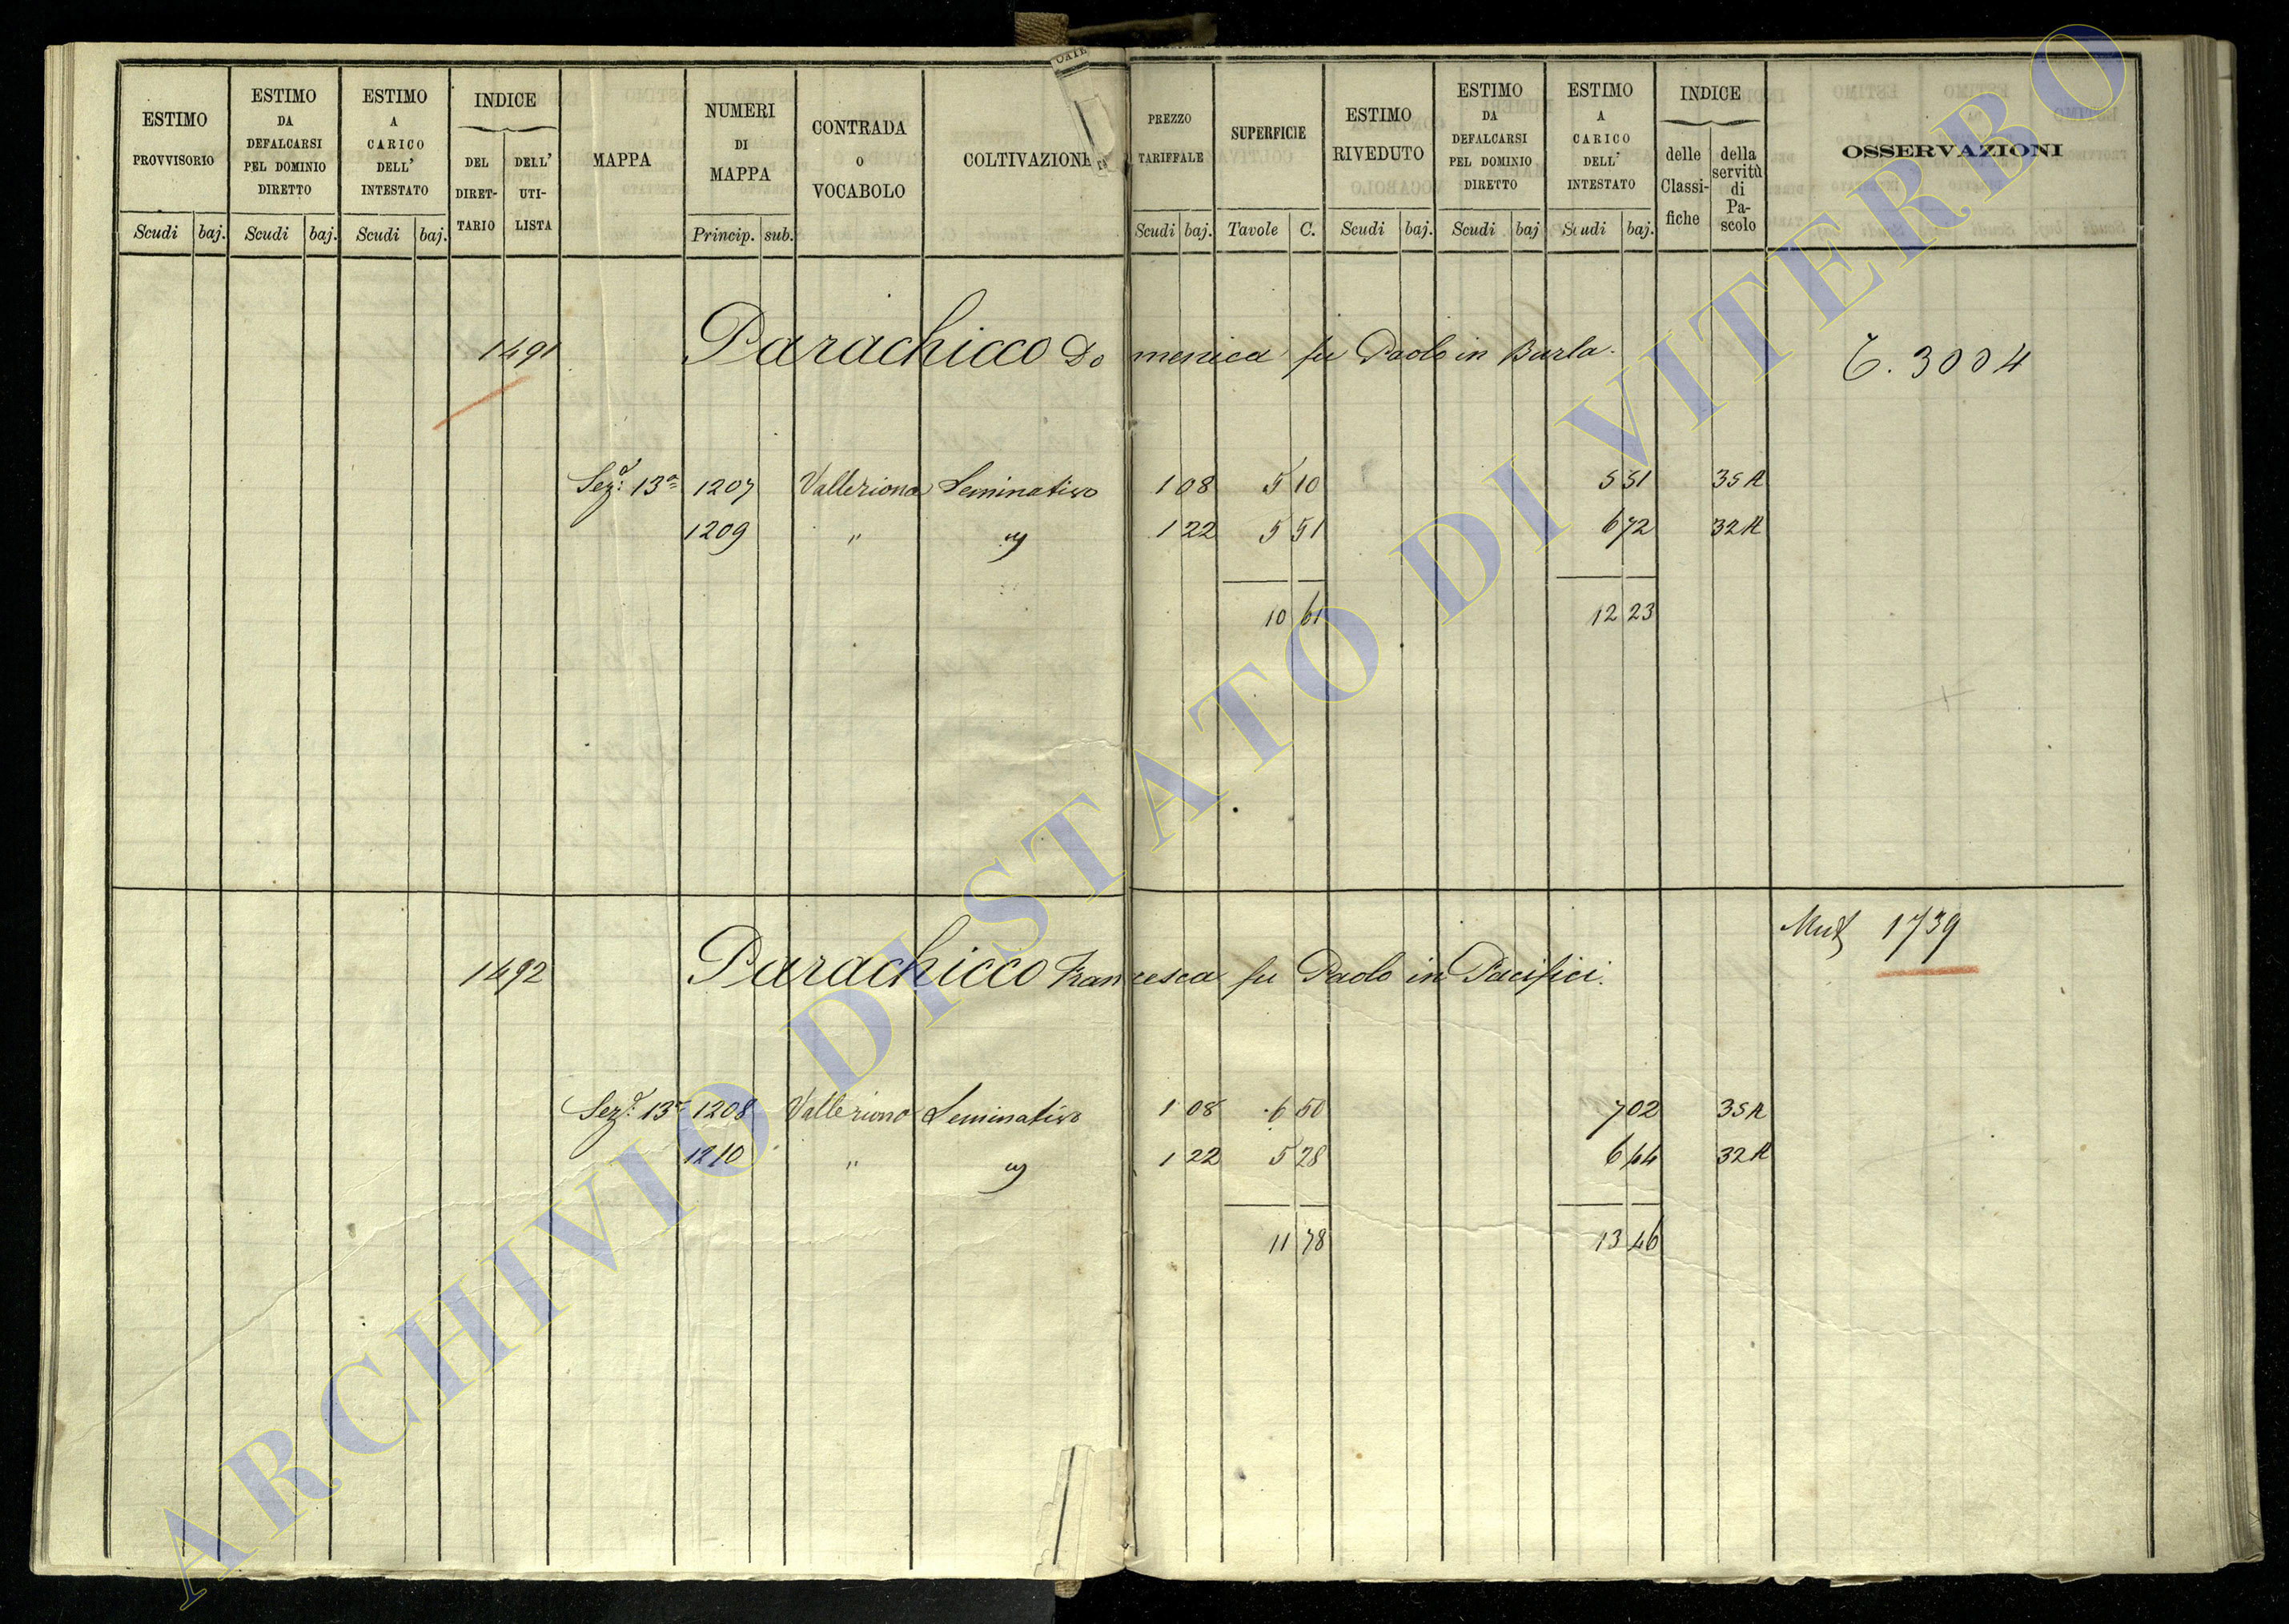 ESTIMO PROVVISORIO Scudi baj.
ESTIMO DA DEFALCARSI PEL DOMINIO DIRETTO Scudi baj.
ESTIMO A CARICO DELL' INTESTATO Scudi baj.
INDICE DEL DIRET- TARIO DELL' UTI- LISTA
MAPPA
NUMERI DI MAPPA Princip. sub.
CONTRADA O VOCABOLO
COLTIVAZIONE
PREZZO TARIFFALE Scudi baj.
SUPERFICIE Tavole C.
ESTIMO RIVEDUTO Scudi baj.
ESTIMO DA DEFALCARSI PEL DOMINIO DIRETTO Scudi baj
ESTIMO A CARICO DELL' INTESTATO Scudi baj.
INDICE delle Classi- fiche della servitù di Pa- scolo
OSSERVAZIONI
1491 Parachicco Domenica fu Paolo in Burla. 3004
Sez.e 13a 1207 Valleriona Seminativo 1 08 5 10 5 51 35 A
1209 " " 1 22 5 51 6 72 32 A
10 61 12 23
Mut 1739
1492 Parachicco Francesca fu Paolo in Pacifici.
Sez.e 13a 1208 Valleriona Seminativo 1 08 6 50 7 02 35 A
1210 " " 1 22 5 28 6 44 32 A
11 78 13 46
ARCHIVIO DI STATO DI VITERBO